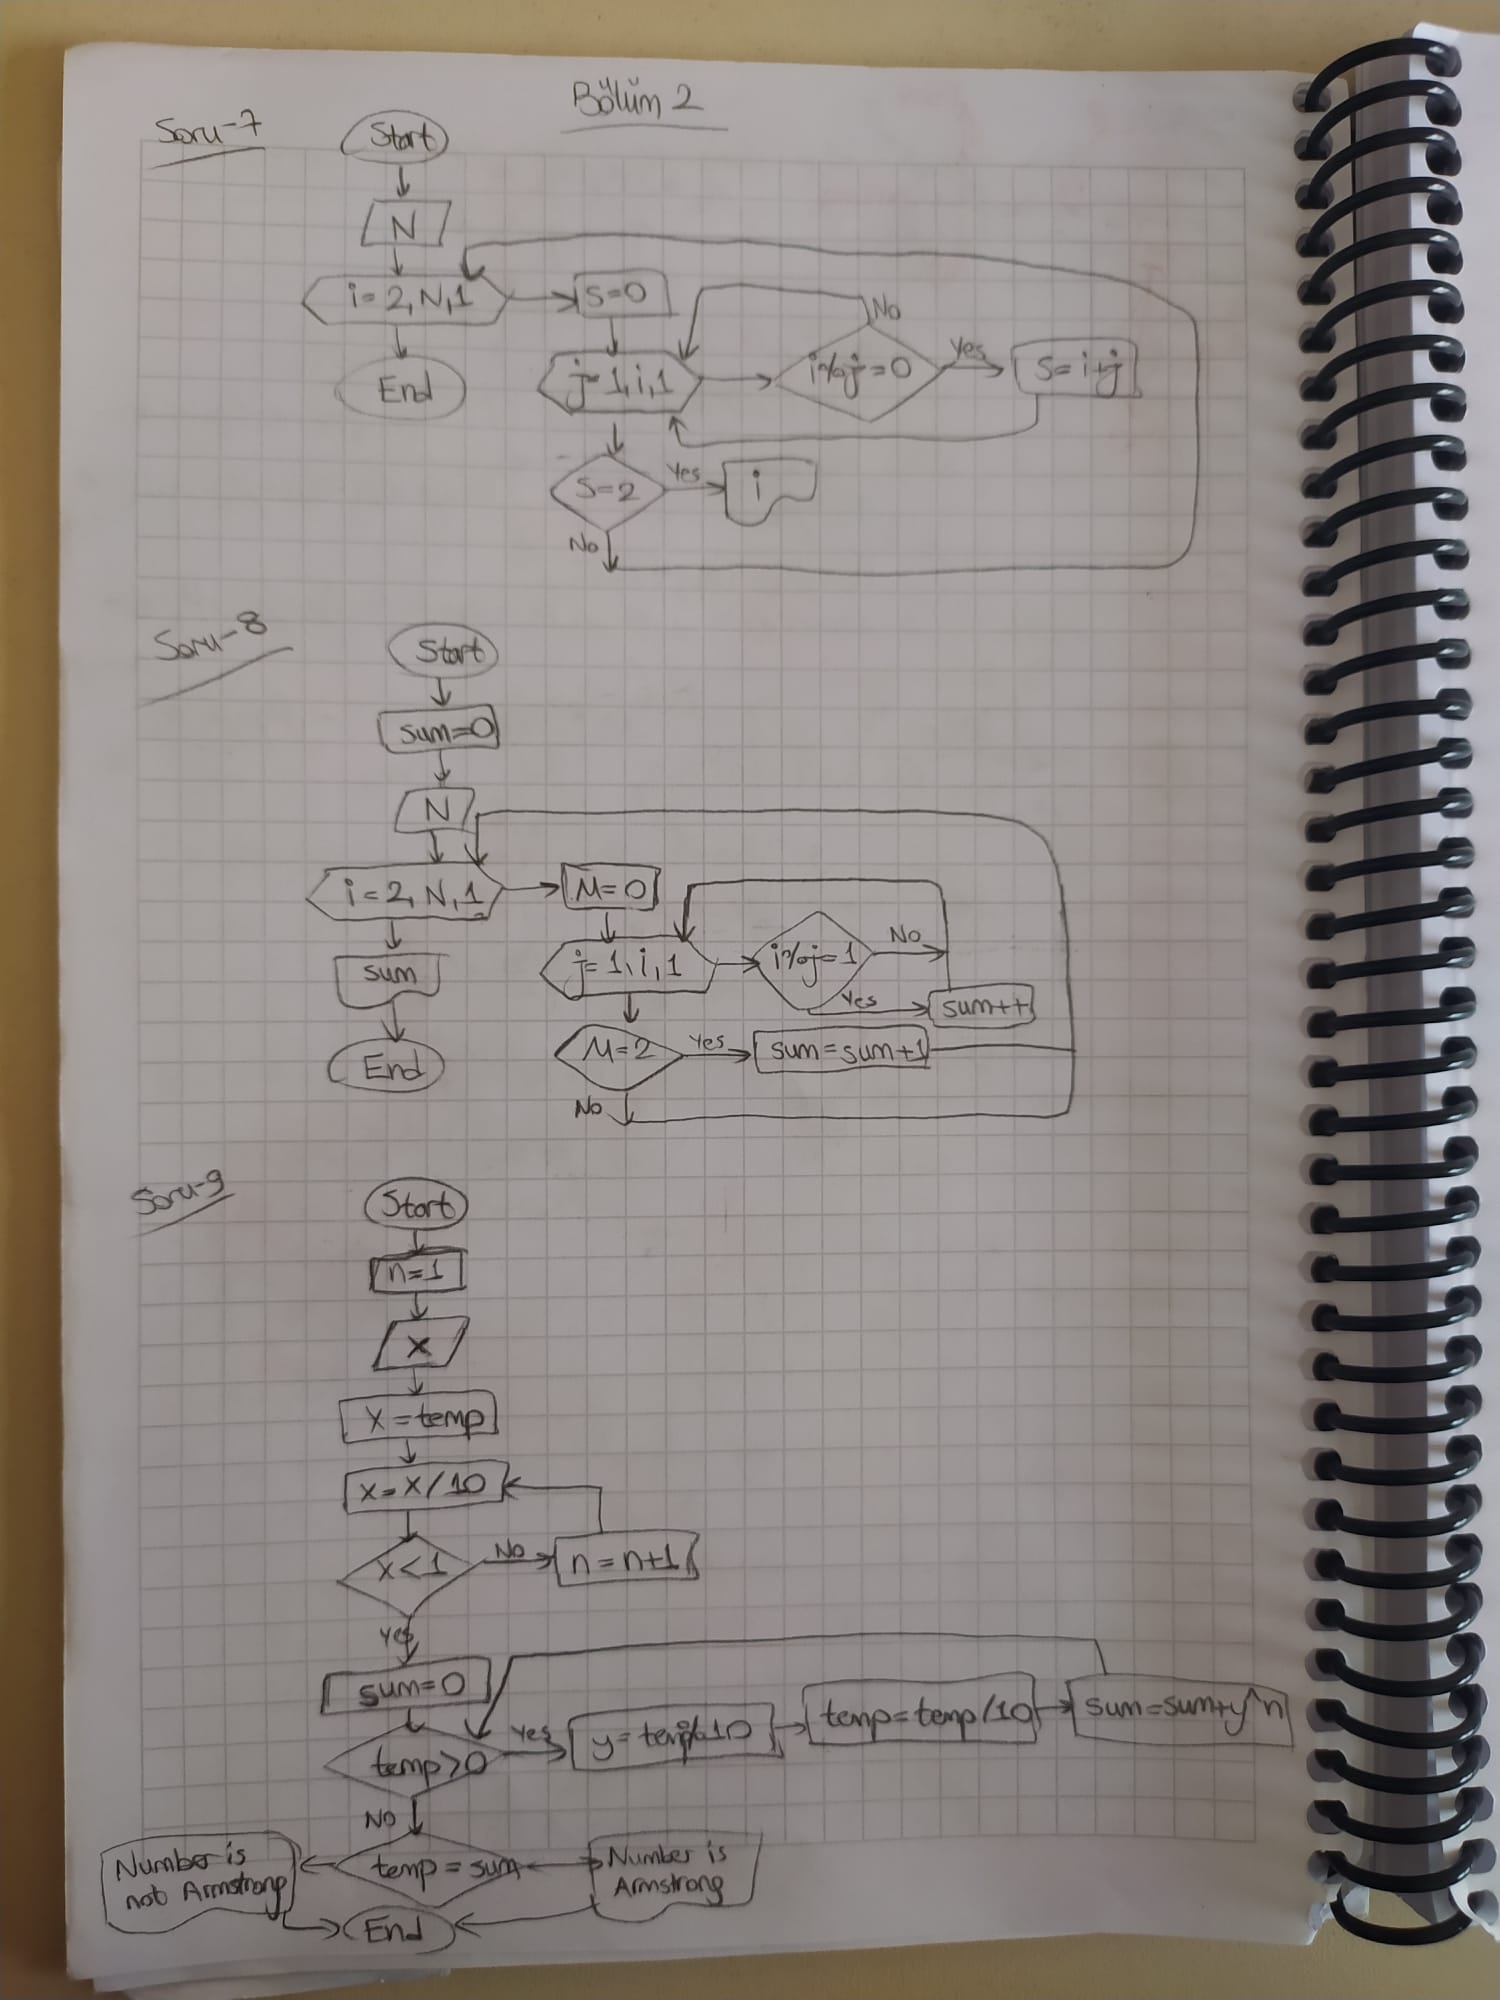 Bölüm 2
Soru-7
Start
N
i=2,N,1
S=0
No
j=1,i,1
i%j=0
Yes
S=i+j
End
S=2
Yes
i
No
Soru-8
Start
sum=0
N
i=2,N,1
M=0
j=1,i,1
i%j=1
No
Yes
sum++
sum
M=2
Yes
sum=sum+1
End
No
Soru-9
Start
n=1
x
x=temp
x=x/10
x<1
No
n=n+1
Yes
sum=0
temp>0
Yes
y=temp%10
temp=temp/10
sum=sum+y^n
No
Number is
not Armstrong
temp=sum
Number is
Armstrong
End